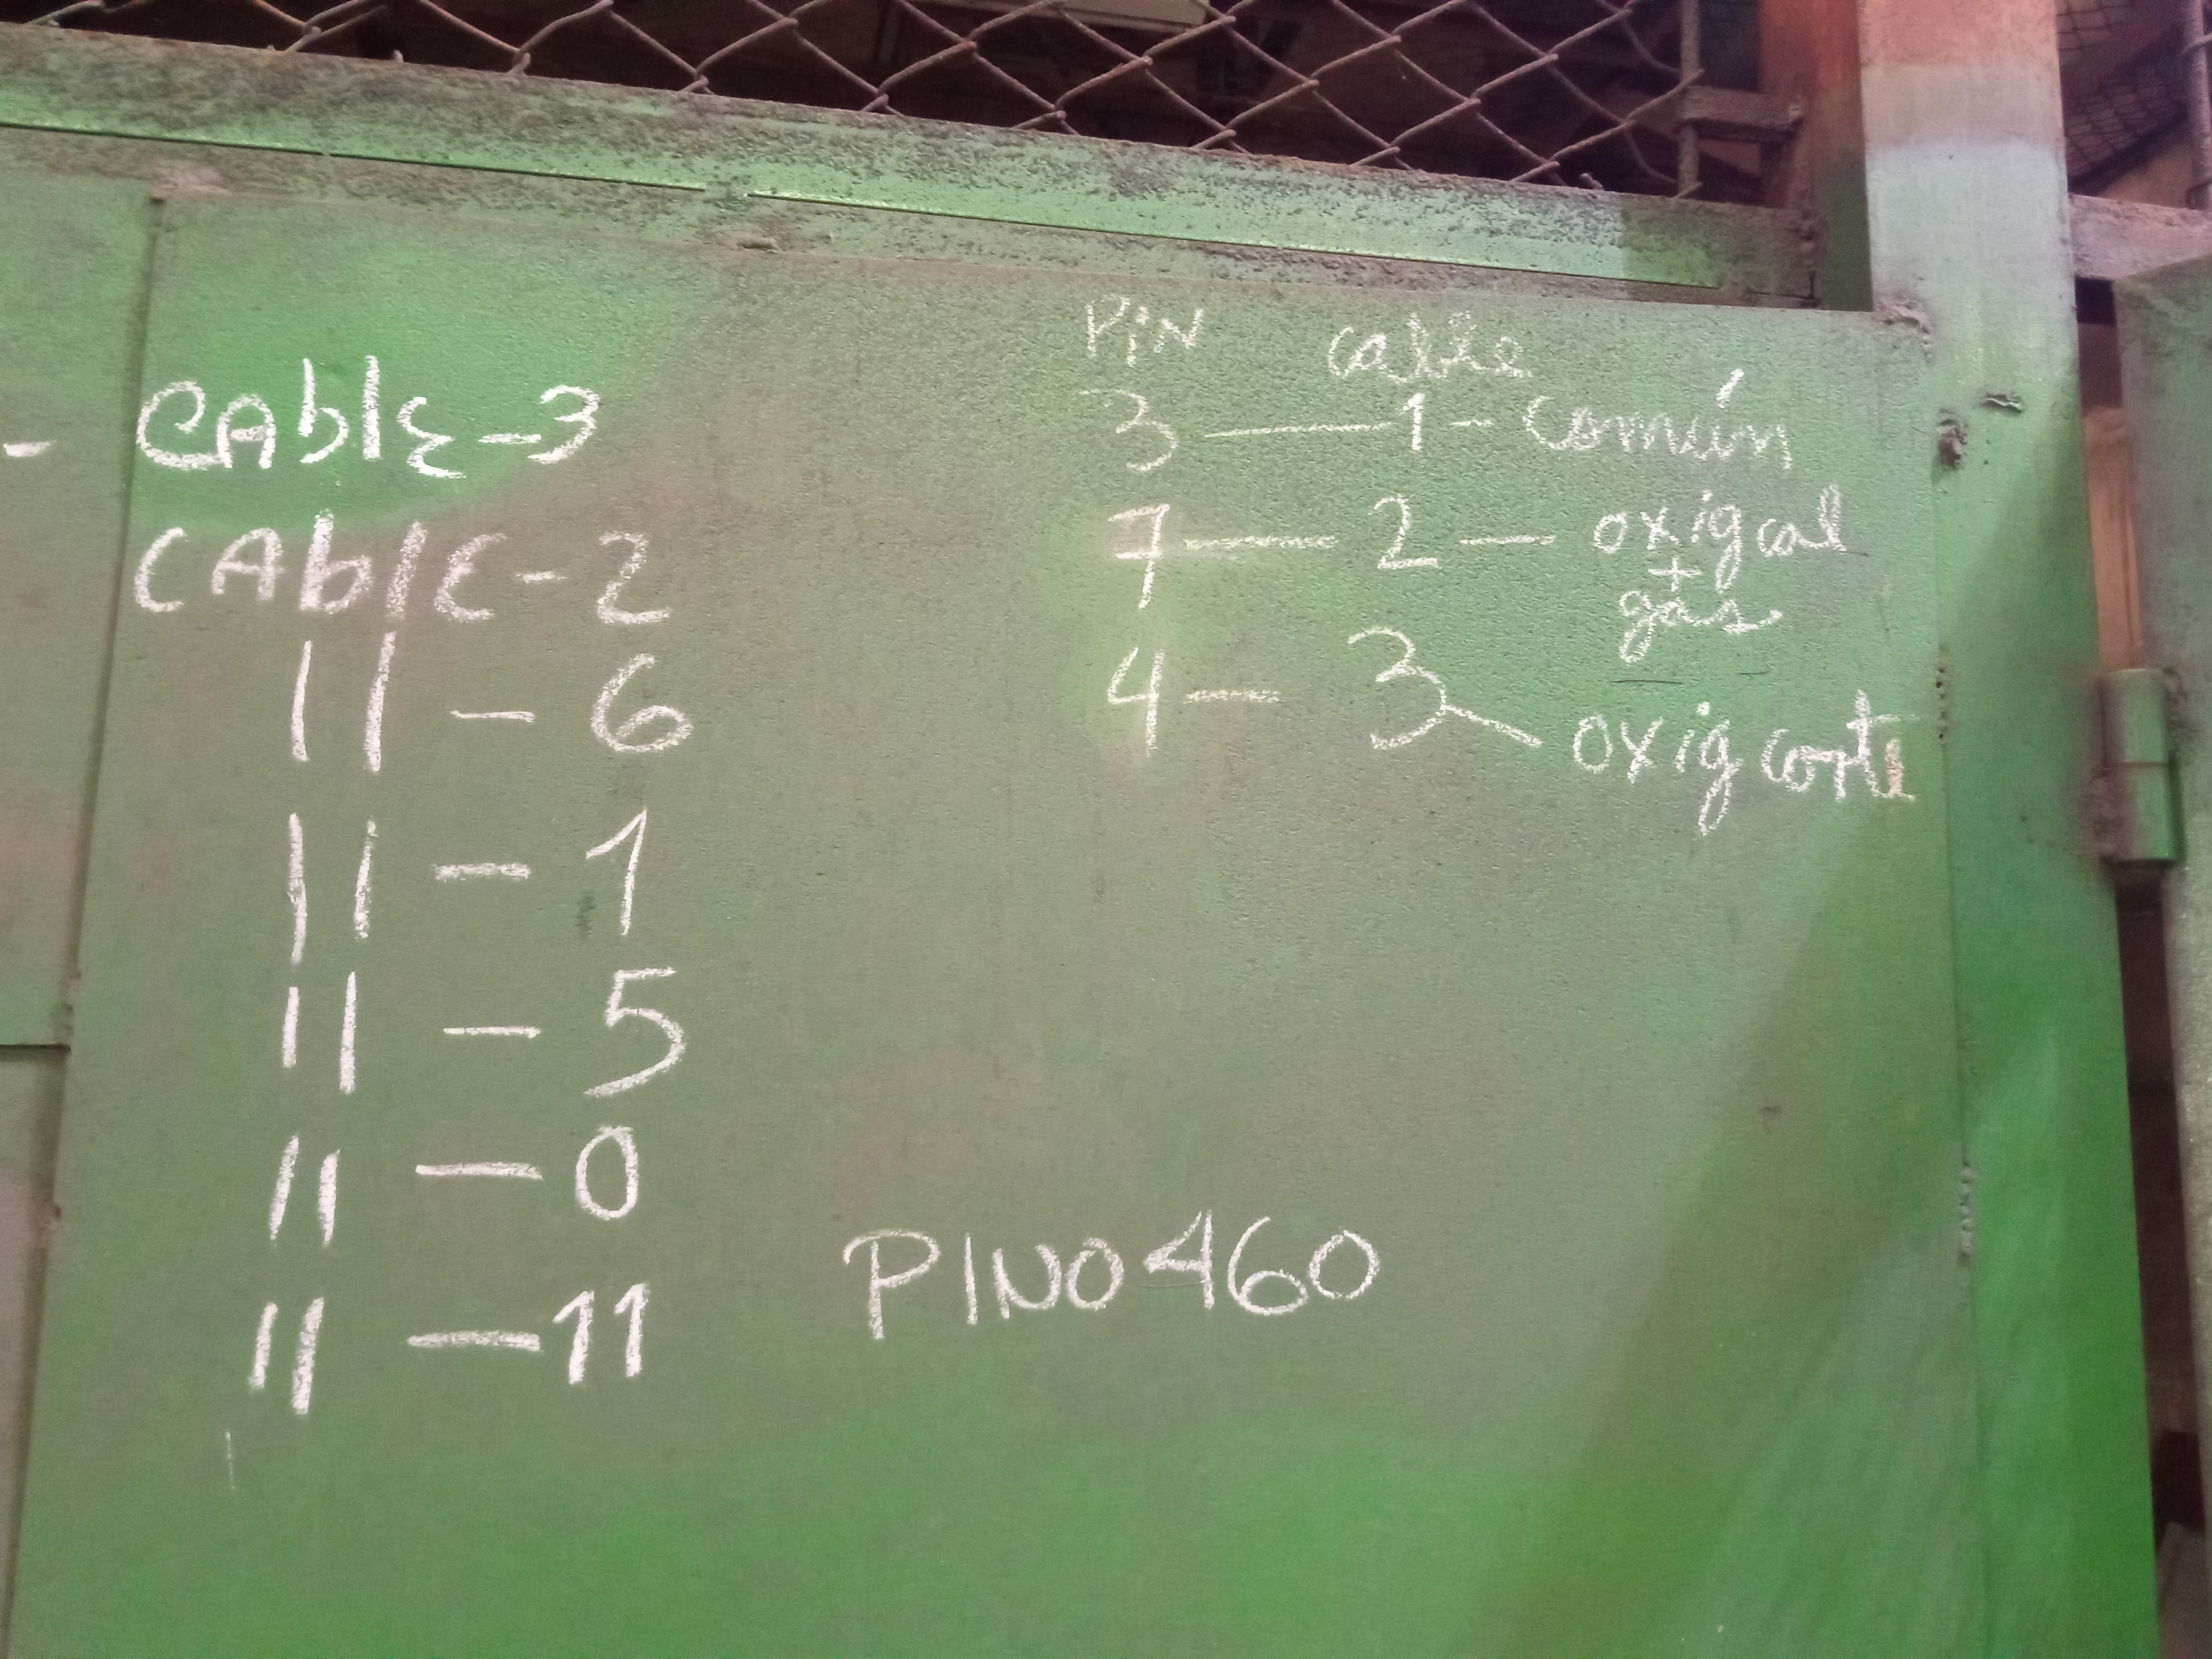 - CAblE-3
CAblE-2
" - 6
" - 1
" - 5
" - 0
" - 11
PiN cable
3 — 1 - común
7 — 2 — oxig cal
+
gas
4 — 3 - oxig corte
PINO 460